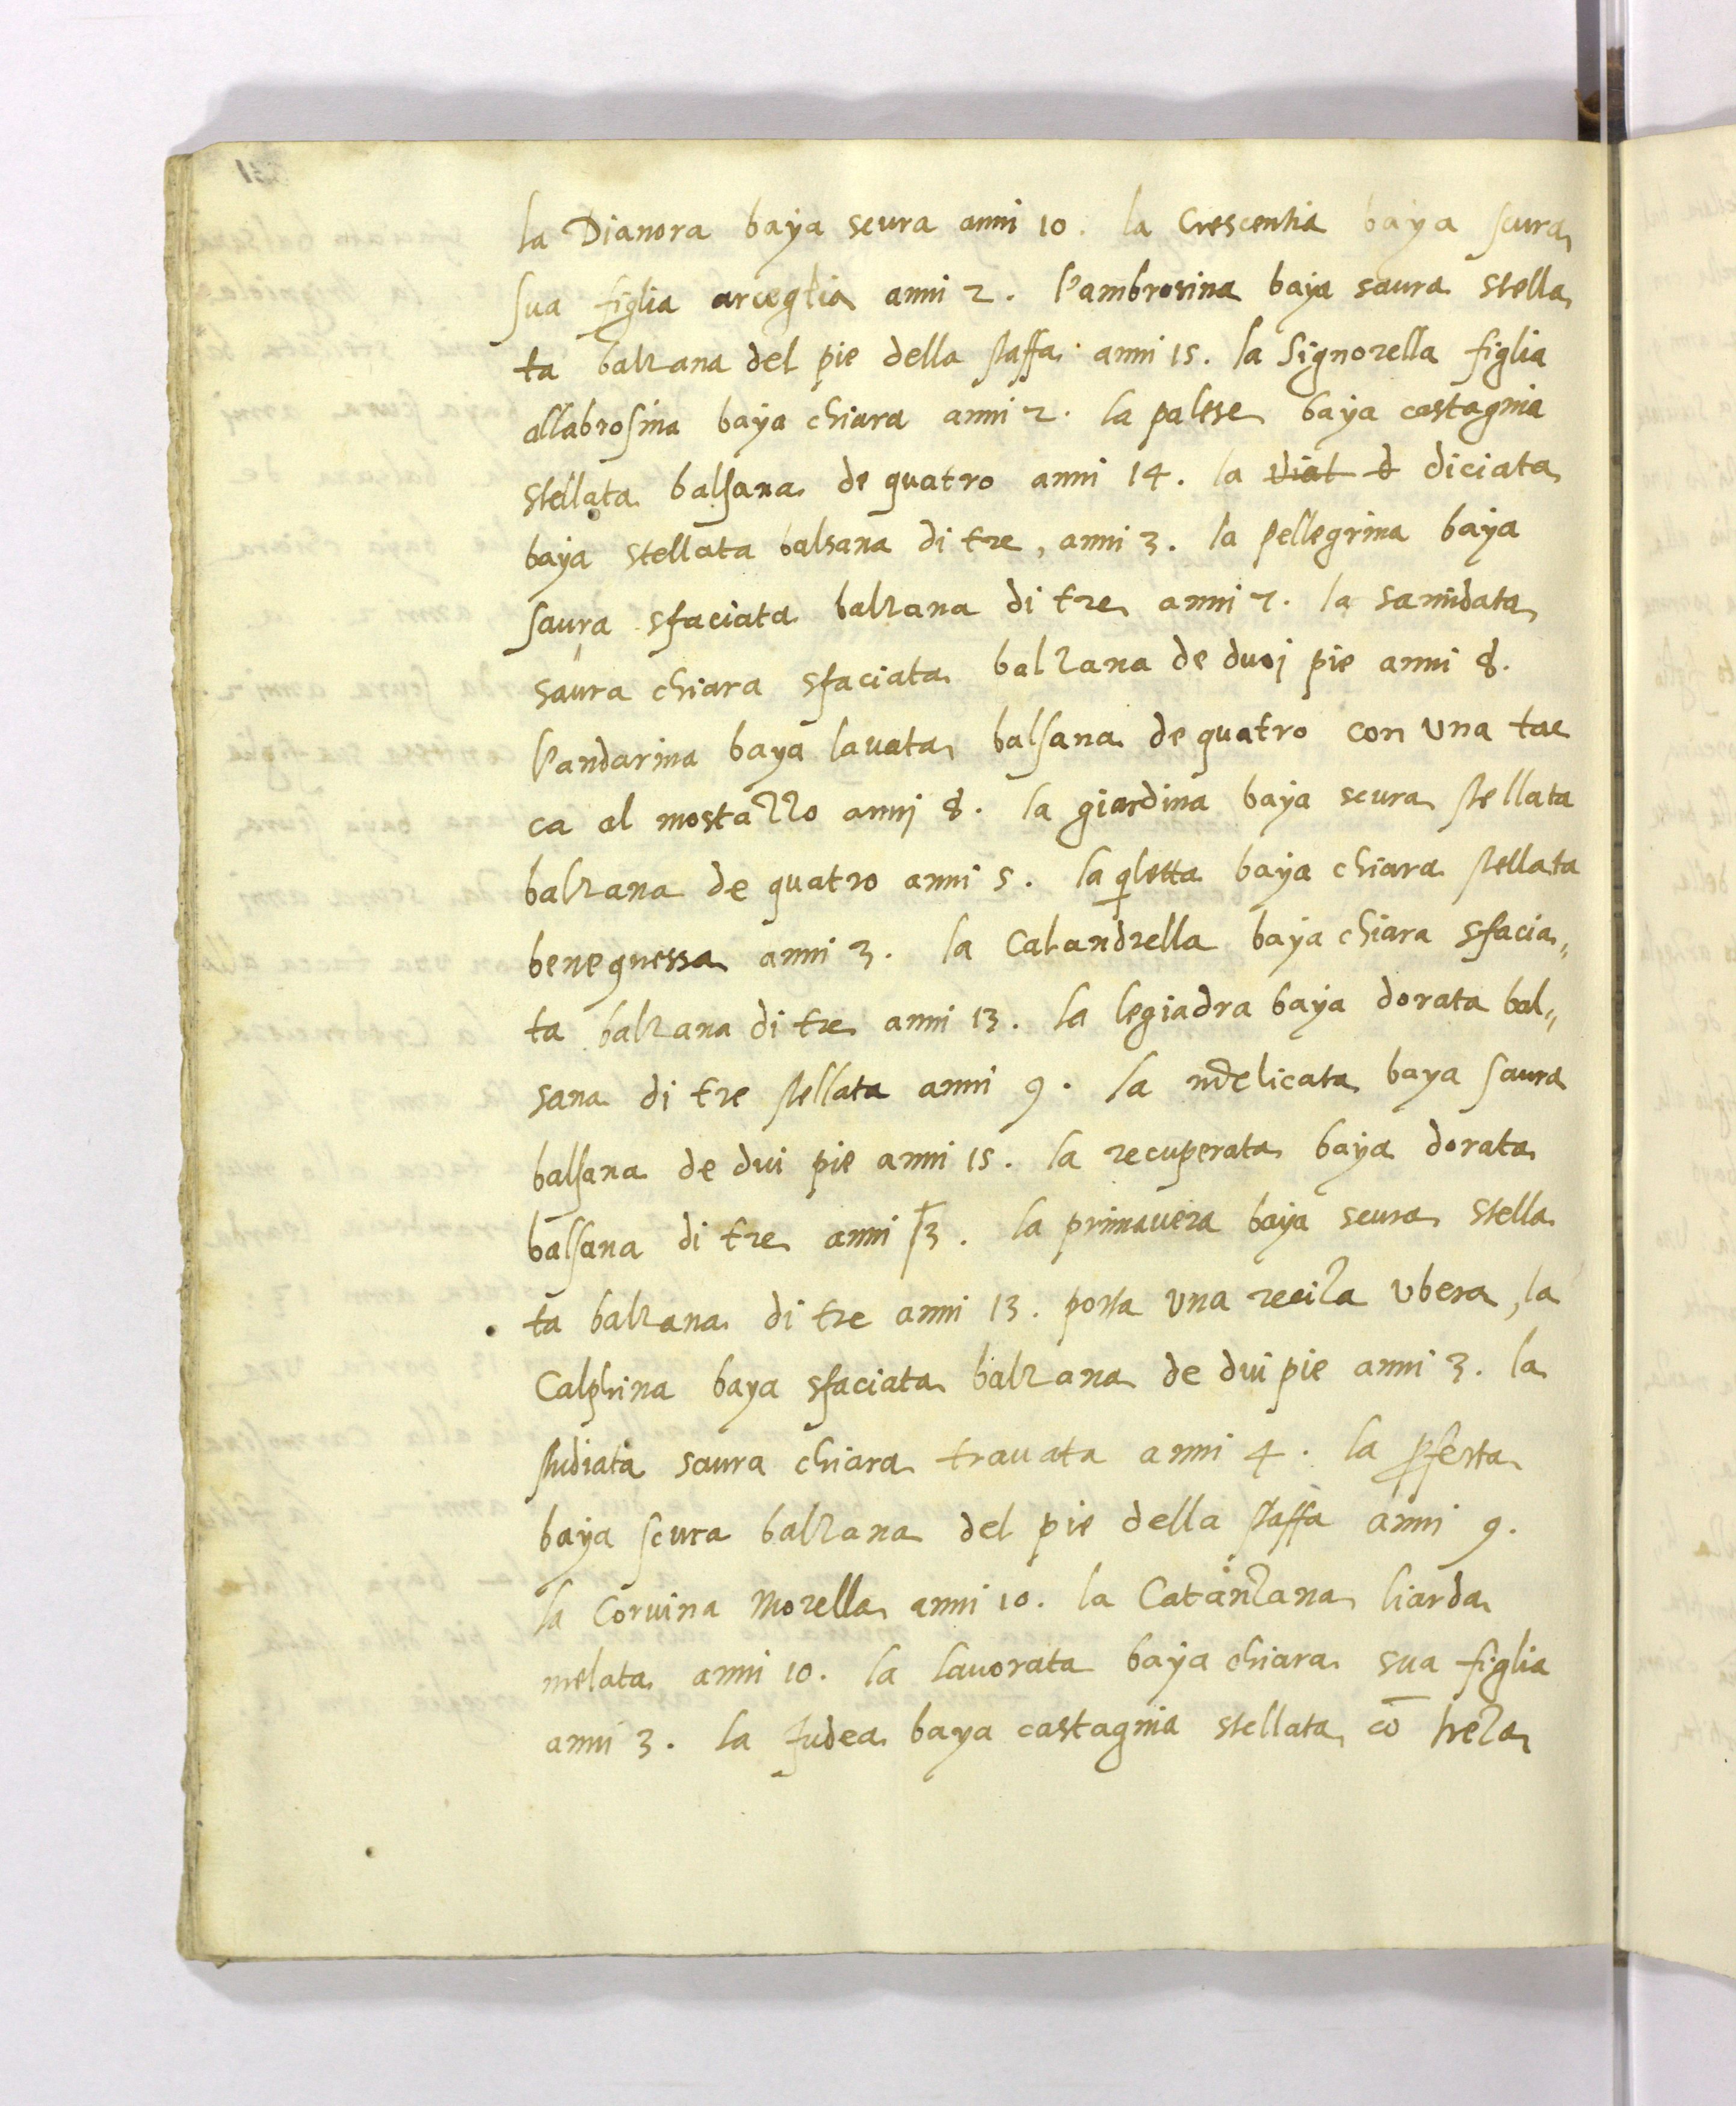 la Dianora baya scura anni 10. la Crescentia baya scura
sua figlia arceglia anni 2. l'ambrosina baya saura stella
ta balzana del pie della staffa anni 15. la Signorella figlia
allabrosina baya chiara anni 2. la palese baya castagnia
stellata balsana de quatro anni 14. la diciata
baya stellata balsana di tre, anni 3. la pellegrina baya
saura sfaciata balzana di tre anni 7. la
saura chiara sfaciata balzana de duoi pie anni 8.
l'andarina baya lauata balsana de quatro con una tac
ca al mostazzo annj 8. la giardina baya scura stellata
balzana de quatro anni 5. la baya chiara stellata
anni 3. la Calandrella baya chiara sfacia„
ta balzana di tre anni 13. la legiadra baya dorata bal„
sana di tre stellata anni 9. la baya saura
balsana de dui pie anni 15. la recuperata baya dorata
balsana di tre anni 13. la primauera baya scura stella
ta balzana di tre anni 13. porta una ubera, la
Calphina baya sfaciata balzana de dui pie anni 3. la
studiata saura chiara trauata anni 4. la
baya scura balzana del pie della staffa anni 9.
la Coruina Morella anni 10. la Catanzana liarda
melata anni 10. la lauorata baya chiara sua figlia
anni 3. la Judea baya castagnia stellata cō treza